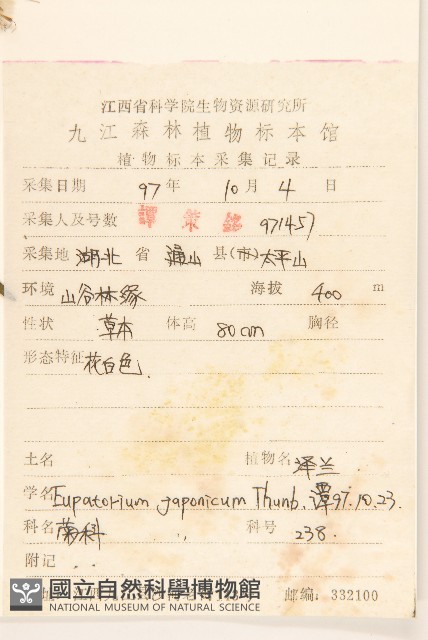 江西省科学院生物资源研究所
九江森林植物标本馆
植物标本采集记录
采集日期 97年 10月 4 日
采集人及号数 譚策銘 971457
采集地 湖北 省 通山 县(市)太平山
环境 山谷林缘 海拔 400 m
性状 草本 体高 80cm 胸径
形态特征 花白色.
土名 植物名 泽兰
学名 Eupatorium japonicum Thunb. 谭97.10.23.
科名 菊科 科号 238.
附记
國立自然科學博物館
NATIONAL MUSEUM OF NATURAL SCIENCE
邮编: 332100